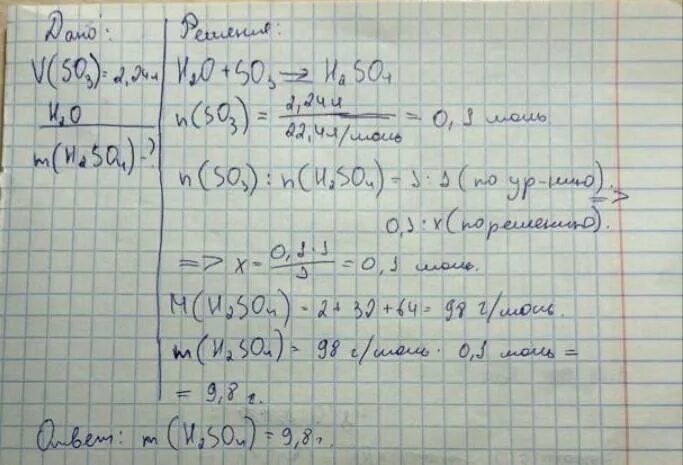 Дано:
V(SO₃)=2,24л
H₂O
m(H₂SO₄)-?
Решения:
H₂O+SO₃ → H₂SO₄
n(SO₃) = 2,24л / 22,4л/моль = 0,1 моль
n(SO₃) : n(H₂SO₄) = 1:1 (по ур-нию). =>
0,1:x (по решению).
=> x = 0,1·1 / 1 = 0,1 моль.
M(H₂SO₄) = 2+32+64 = 98 г/моль.
m(H₂SO₄) = 98 г/моль · 0,1 моль =
= 9,8 г.
Ответ: m(H₂SO₄) = 9,8 г.